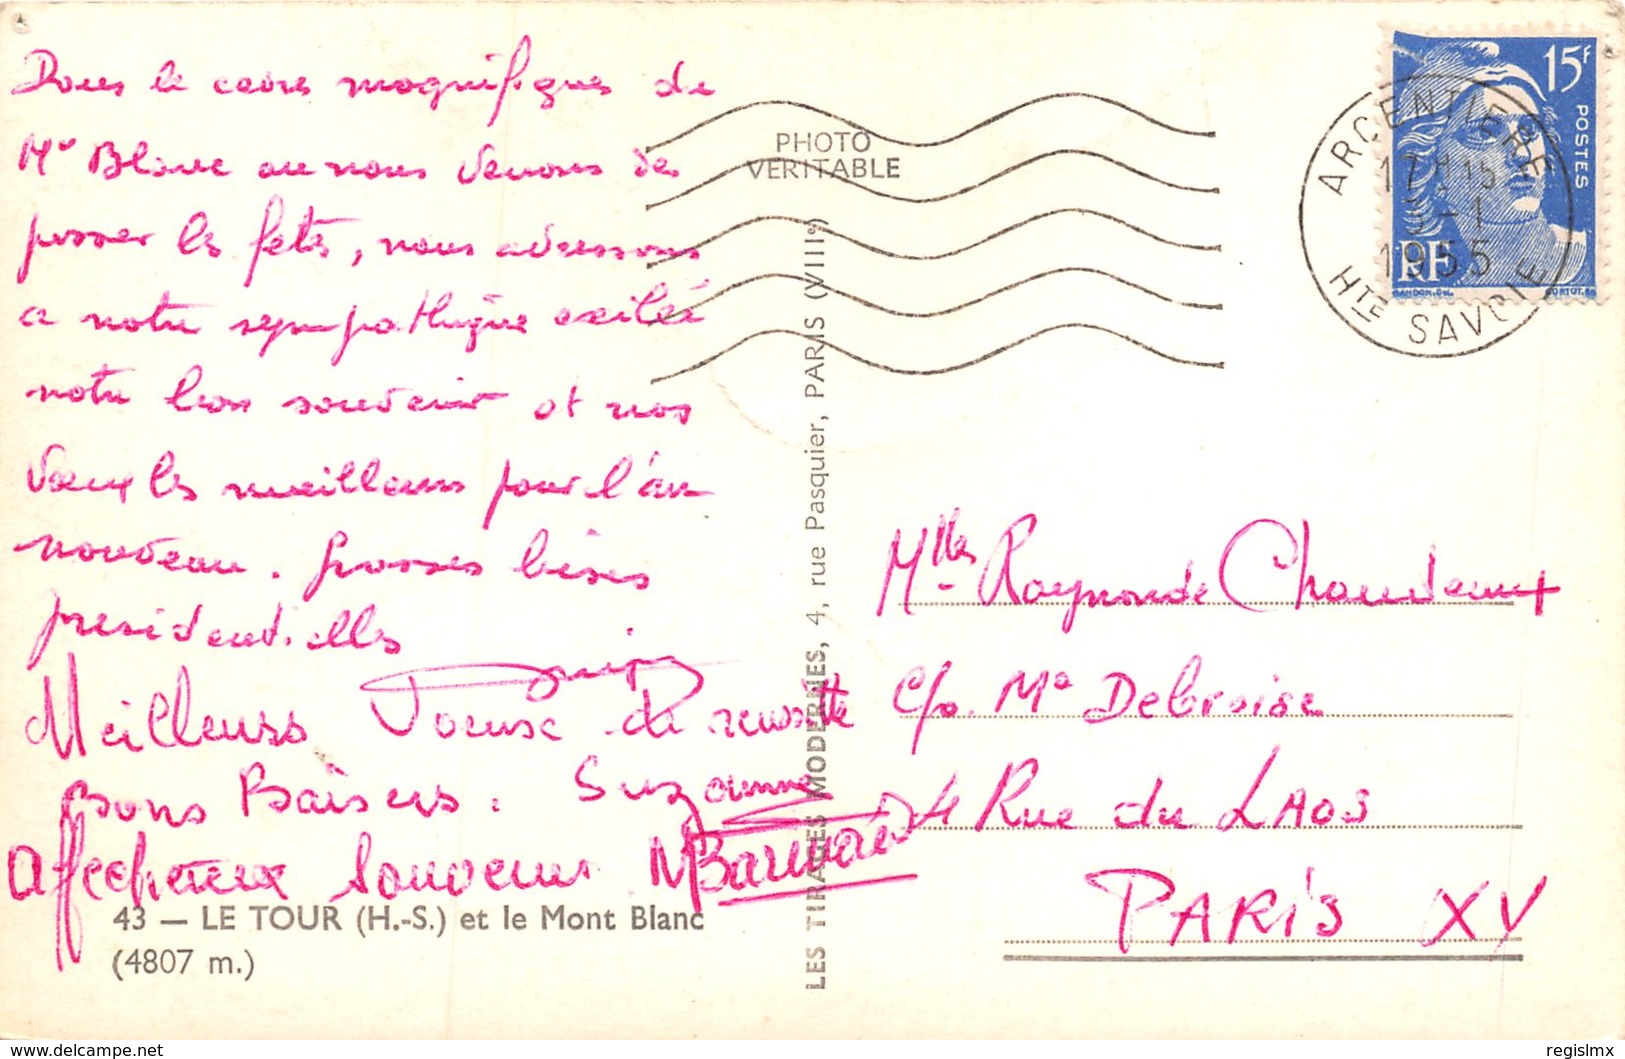 Dans le cadre magnifique du
Mt Blanc ou nous venons de
passer les fêtes, nous adressons
a notre sympathique exilée
notre bon souvenir et nos
Vœux les meilleurs pour l'an
nouveau. Grosses bises
presidentielles
Meilleurs Voeux de reussite
Bons Baisers. Suzanne
Affectueux Souvenir
43 — LE TOUR (H.-S.) et le Mont Blanc
(4807 m.)
PHOTO
VERITABLE
LES TIRAGES MODERNES, 4, rue Pasquier, PARIS (VIIIe)
15F
POSTES
RF
GANDON.Del.
CORTOT.Sc
ARGENTIERE
17H15
3-1
1955
HTE SAVOIE
Mlles Raymonde Chaudeaux
c/o. Me Debroise
4 Rue du LAOS
PARIS XV
regislmx
www.delcampe.net